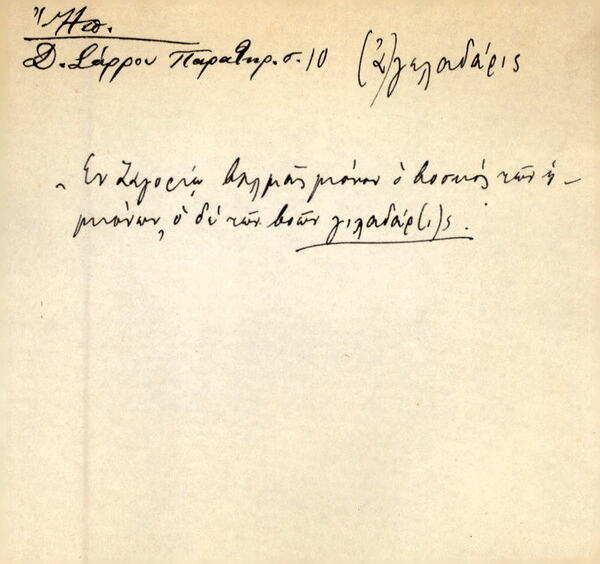 Ἤπ.
Δ. Σάρρου Παρατηρ. σ. 10 (ἀ)γελαδάρις
"Ἐν Ζαγορίῳ βαλμᾶς μόνον ὁ βοσκὸς τῶν ἡ-
μιόνων, ὁ δὲ τῶν βοῶν γιλαδάρ(ι)ς.